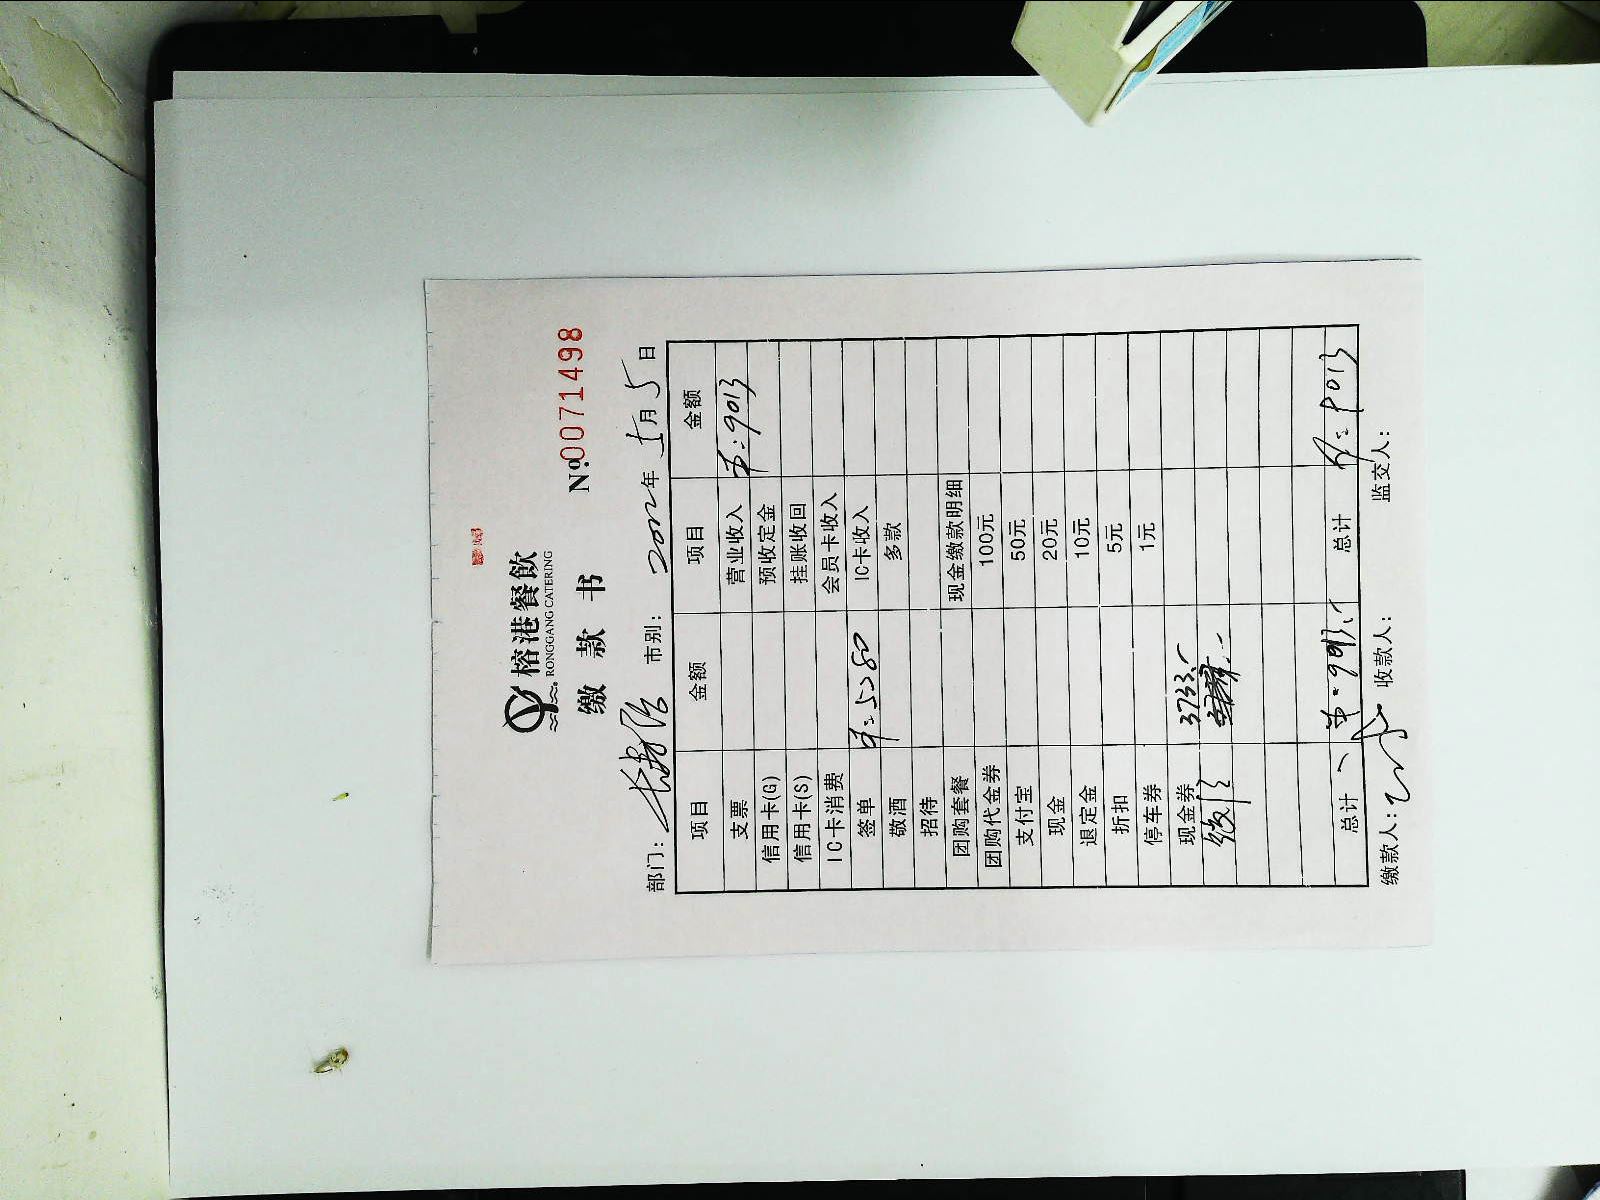 榕港餐飲
RONGGANG CATERING
缴款书
Nº.0071498
部门： 市别： 2022年 5月 5日
项目 金额 项目 金额
支票 营业收入 9013
信用卡(G) 预收定金
信用卡(S) 挂账收回
IC卡消费 会员卡收入
签单 5280 IC卡收入
敬酒 多款
招待
团购套餐 现金缴款明细
团购代金券 100元
支付宝 50元
现金 20元
退定金 10元
折扣 5元
停车券 1元
现金券 3733.-
微信
总计 总计 9013
缴款人： 收款人： 监交人：